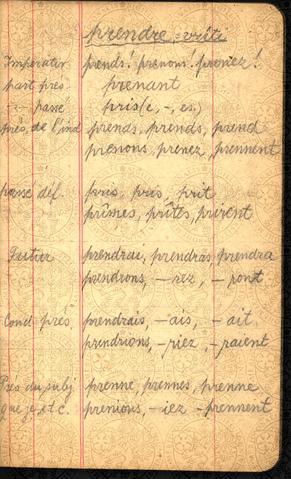 prendre = vzíti
Impératif prends! prenons! prenez!
part. prés. prenant
-"- passé pris(e, -, es)
prés. de l'ind. prends, prends, prend
prenons, prenez, prennent
passé déf. pris, pris, prit
prîmes, prîtes, prirent
prendrai, prendras, prendra
prendrons, — rez, — ront
Cond. prés. prendrais, — ais, — ait
prendrions, — riez, — raient
Prés du subj. prenne, prennes, prenne
que je etc. prenions, — iez — prennent